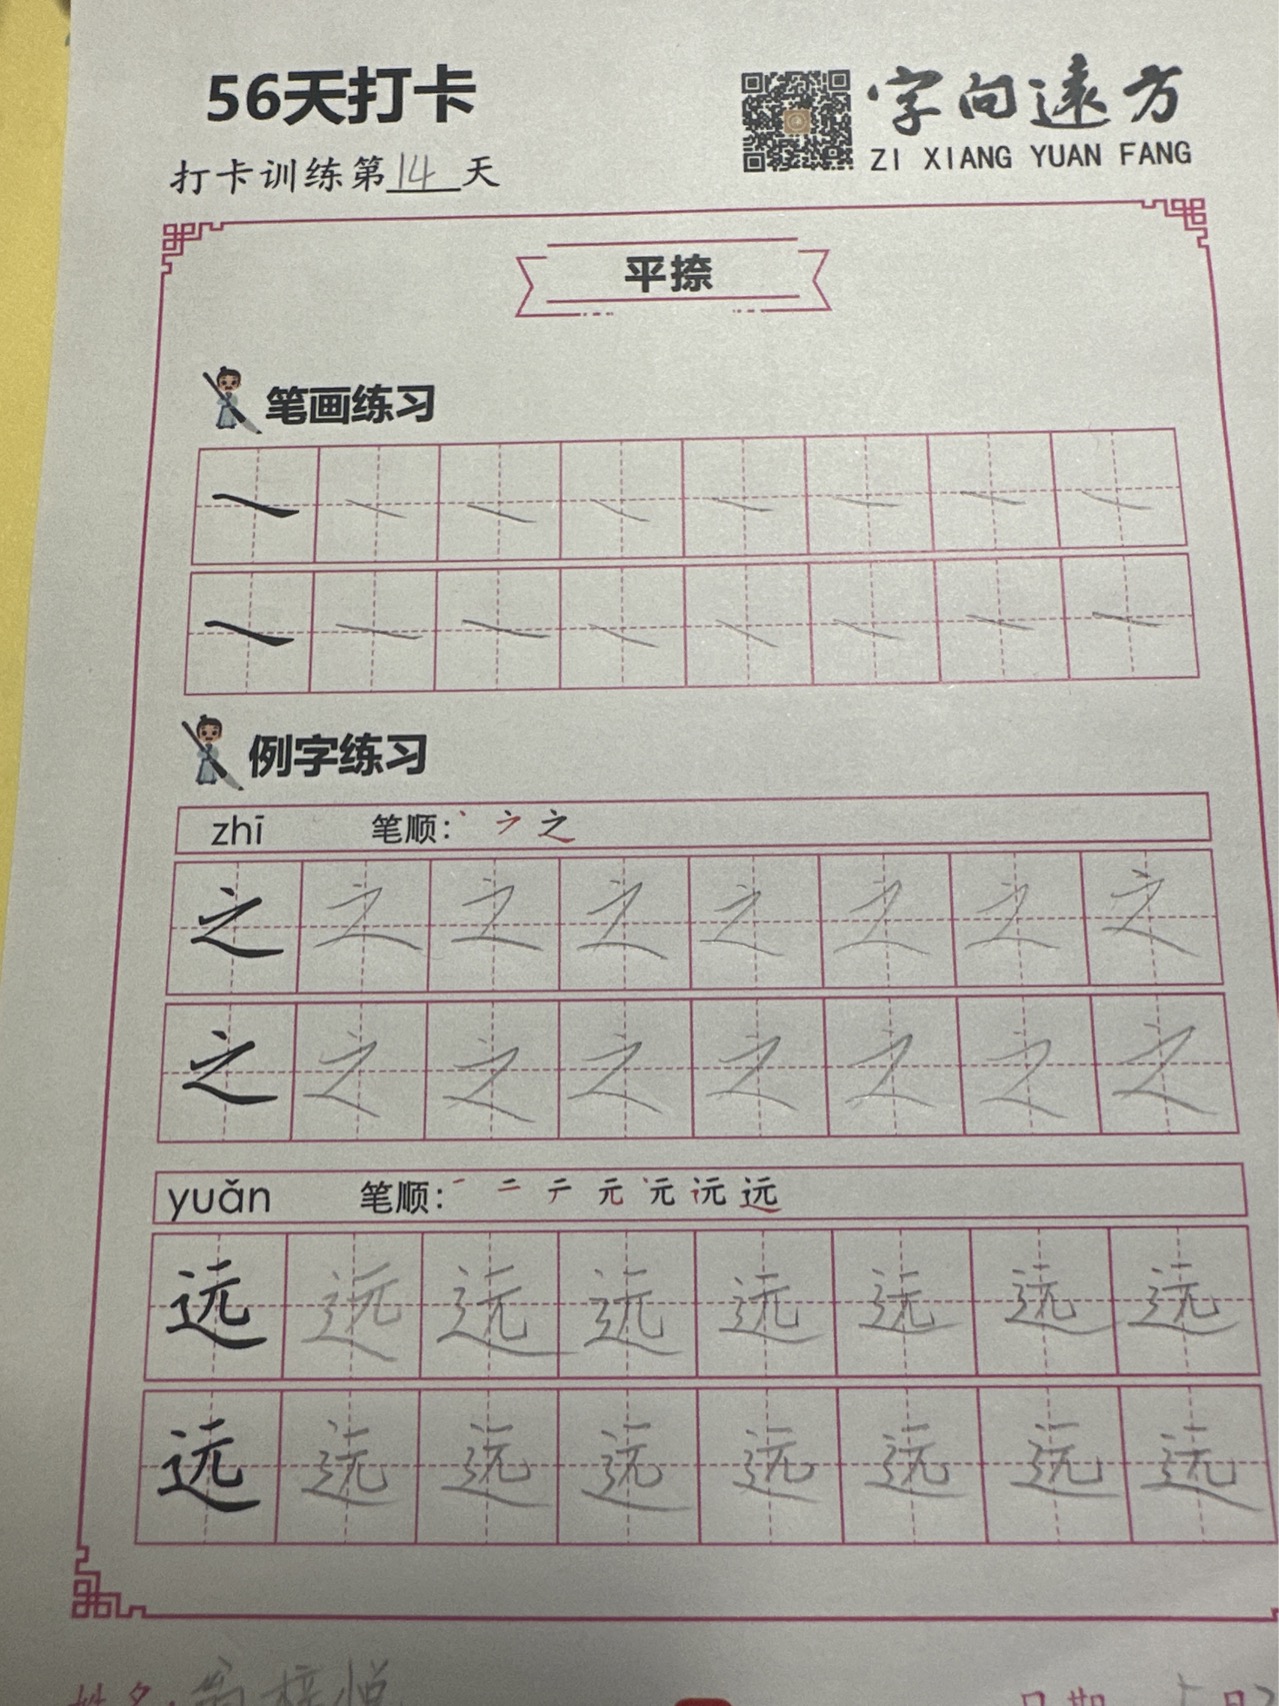 56天打卡
字向远方
ZI XIANG YUAN FANG
打卡训练第14天
平捺
笔画练习
例字练习
zhī 笔顺: 之
之 之 之 之 之 之 之 之
之 之 之 之 之 之 之 之
yuǎn 笔顺: 一 二 テ 元 远
远 远 远 远 远 远 远 远
远 远 远 远 远 远 远 远
姓名:
日期